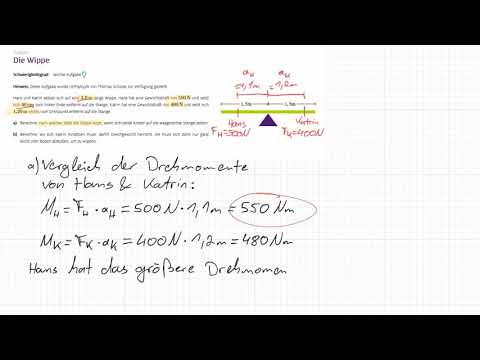 Die Wippe
Schwierigkeitsgrad: leichte Aufgabe
Hinweis: Diese Aufgabe wurde LEIFIphysik von Thomas Schulze zur Verfügung gestellt.
Hans und Katrin setzen sich auf eine 3,0 m lange Wippe. Hans hat eine Gewichtskraft von 500 N und setzt
sich 40 cm vom linken Ende entfernt auf die Stange. Katrin hat eine Gewichtskraft von 400 N und setzt sich
1,20 m rechts vom Drehpunkt entfernt auf die Stange.
a) Berechne, nach welcher Seite die Wippe kippt, wenn sich beide Kinder auf die waagerechte Stange setzen.
b) Berechne, wo sich Katrin hinsetzen muss, damit Gleichgewicht herrscht. Sie muss sich dann nur ganz
leicht vom Boden abstoßen, um zu wippen.
a_H a_K
=1,1m =1,2m
1,5m 1,5m
Hans Katrin
F_H=500N F_K=400N
a) Vergleich der Drehmomente
von Hans & Katrin:
M_H = F_H · a_H = 500 N · 1,1m = 550 Nm
M_K = F_K · a_K = 400 N · 1,2m = 480 Nm
Hans hat das größere Drehmomen